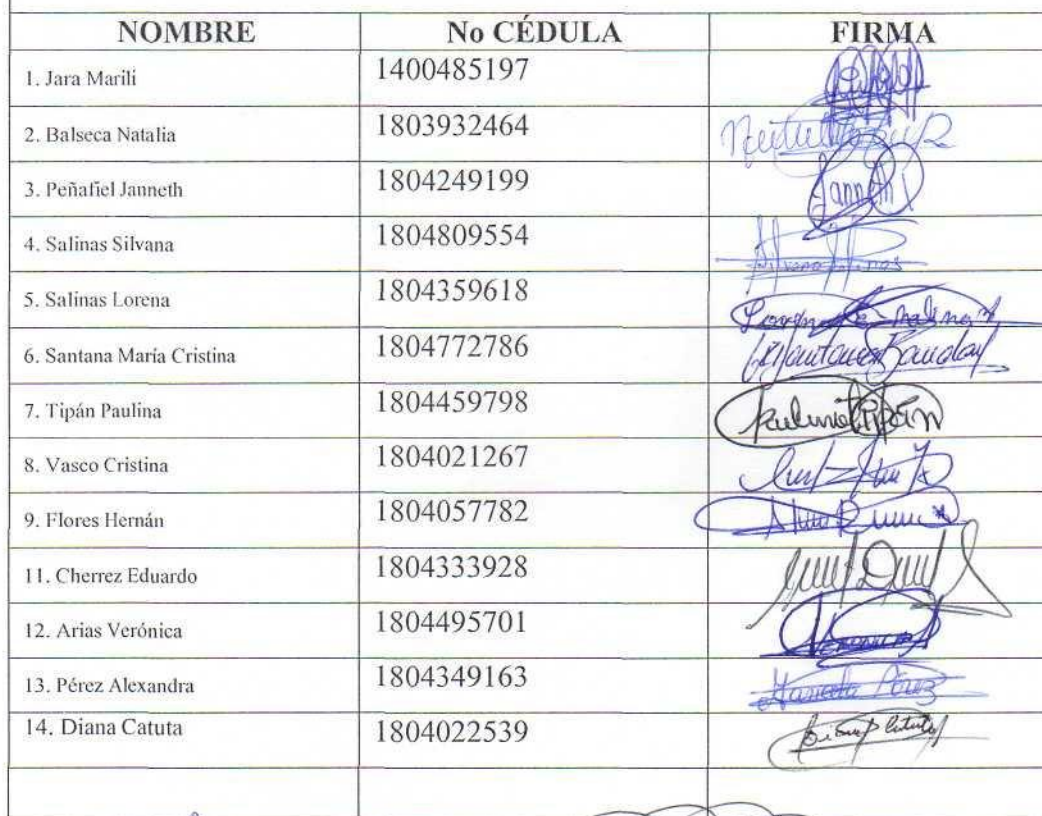 NOMBRE No CÉDULA FIRMA
1. Jara Marili 1400485197
2. Balseca Natalia 1803932464
3. Peñafiel Janneth 1804249199 Janneth
4. Salinas Silvana 1804809554
5. Salinas Lorena 1804359618
6. Santana María Cristina 1804772786
7. Tipán Paulina 1804459798
8. Vasco Cristina 1804021267
9. Flores Hernán 1804057782
11. Cherrez Eduardo 1804333928
12. Arias Verónica 1804495701
13. Pérez Alexandra 1804349163 Pérez
14. Diana Catuta 1804022539